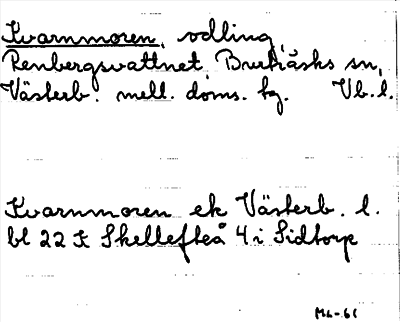 Kvarnmoren, odling,
Renbergsvattnet, Burträsks sn,
Västerb. mell. doms. tg. Vb.l.
Kvarnmoren ek Västerb. l.
bl 22 K Skellefteå 4 i Sidtorp
ML-61